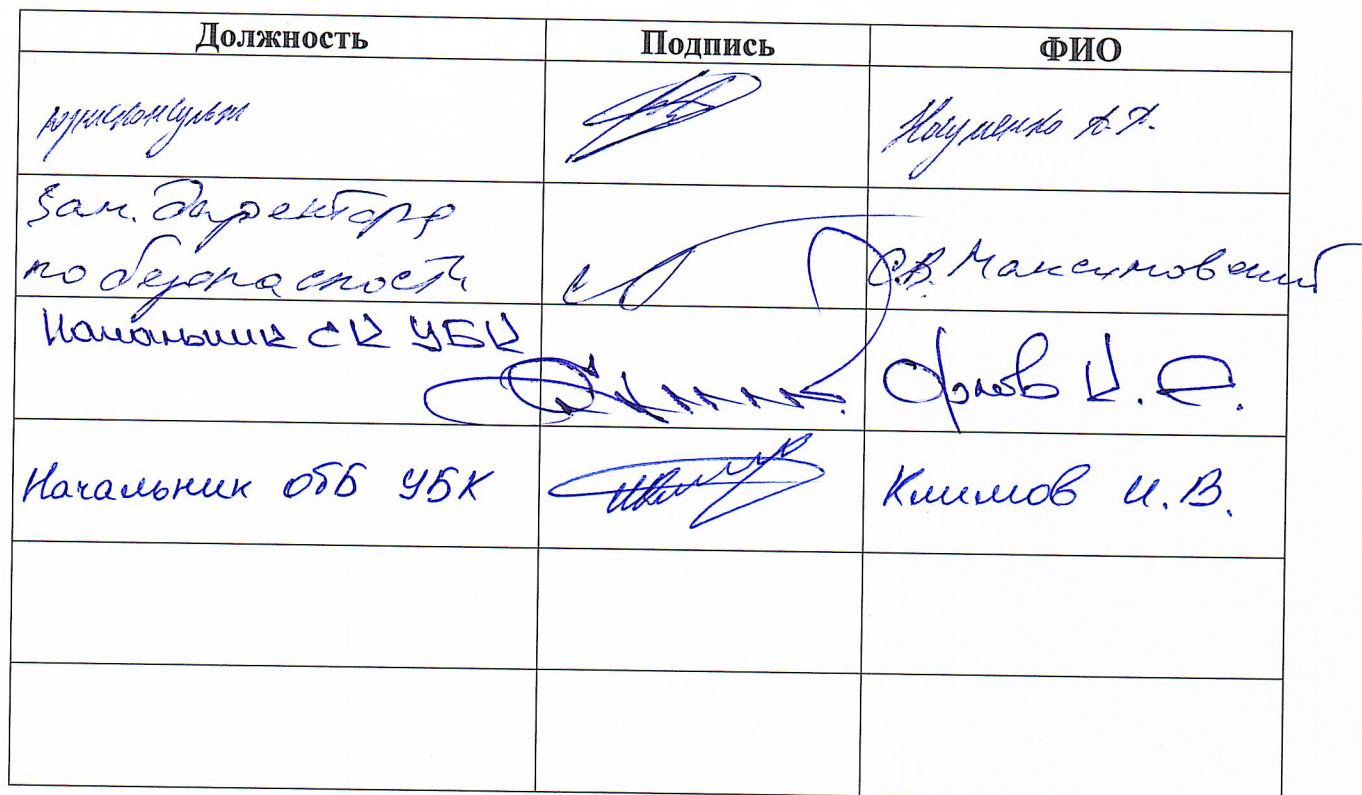 Должность Подпись ФИО
юрисконсульт Науменко А.А.
Зам. директора
по безопасности С.В. Максимовский
Начальник СК УБК Орлов К. С.
Начальник ОББ УБК Климов И.В.